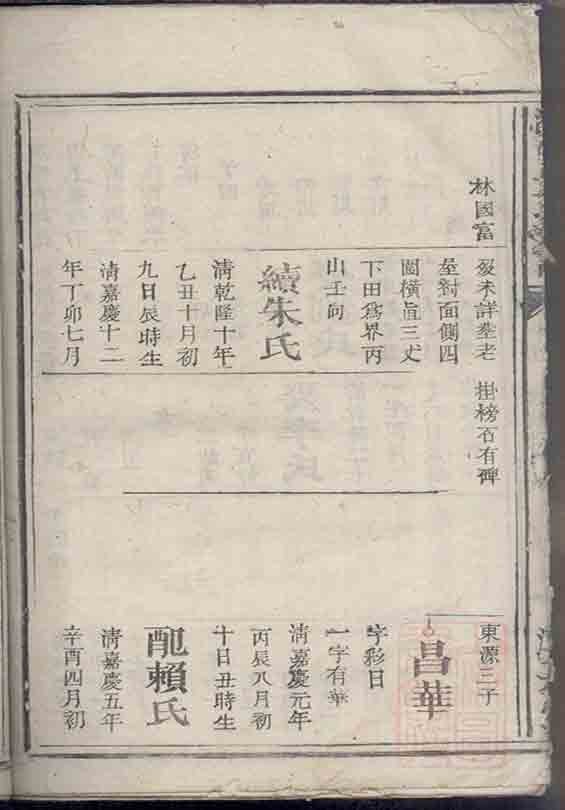 林國富
歿未詳塟老
屋對面側四
圍橫直三丈
下田爲界丙
山壬向
續朱氏
清乾隆十年
乙丑十月初
九日辰時生
清嘉慶十二
年丁卯七月
掛榜石有碑
東源三子
昌華
字彩日
一字有華
清嘉慶元年
丙辰八月初
十日丑時生
配賴氏
清嘉慶五年
辛酉四月初